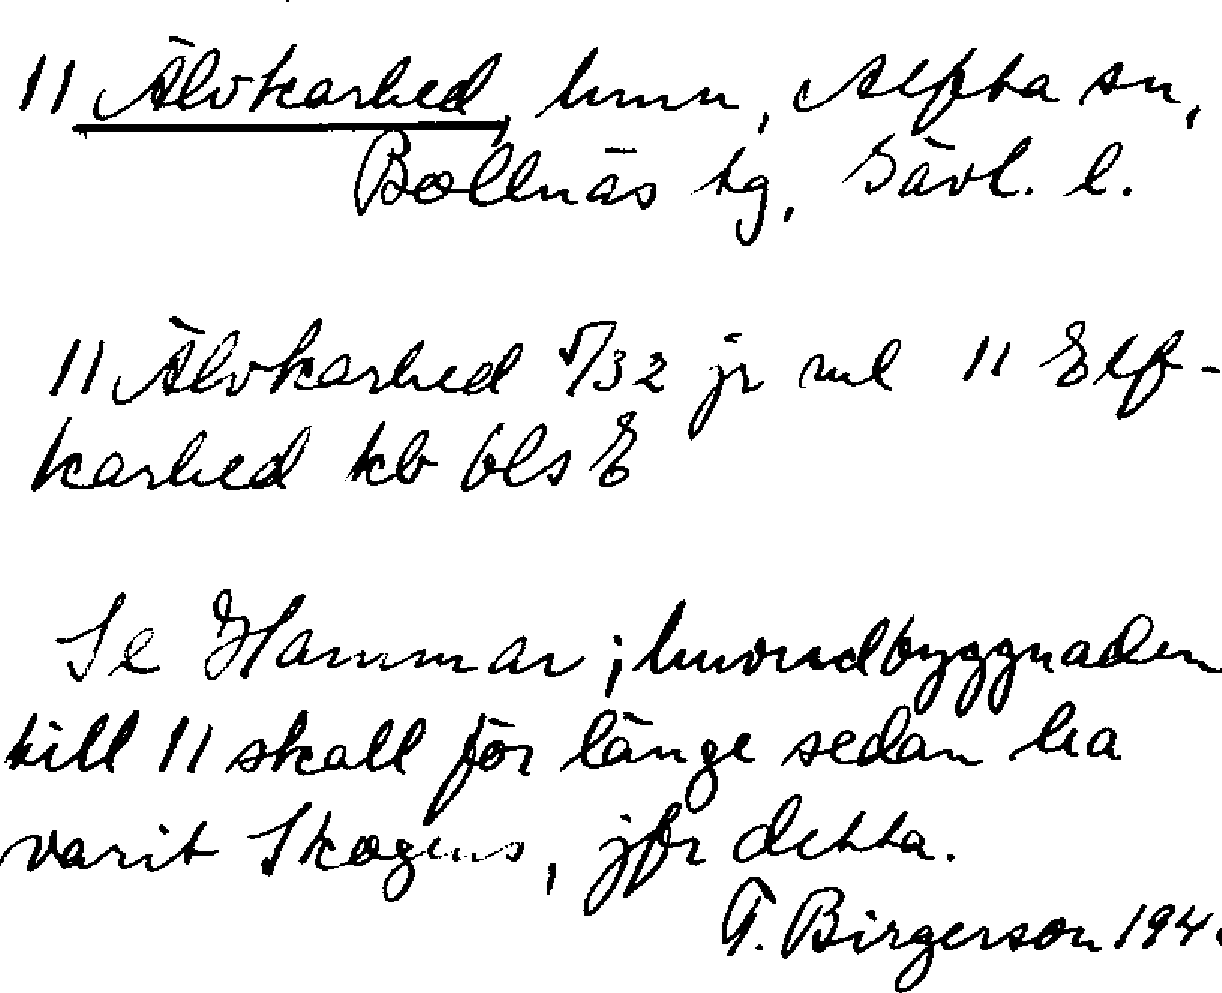 11 Älvkarhed, hmn, Alfta sn,
Bollnäs tg, Gävl. l.
11 Älvkarhed /32 jr ml 11 Elf-
karhed kb bls E
Se Hammar; huvudbyggnaden
till 11 skall för länge sedan ha
varit Skogens, jfr detta.
T. Birgerson 194